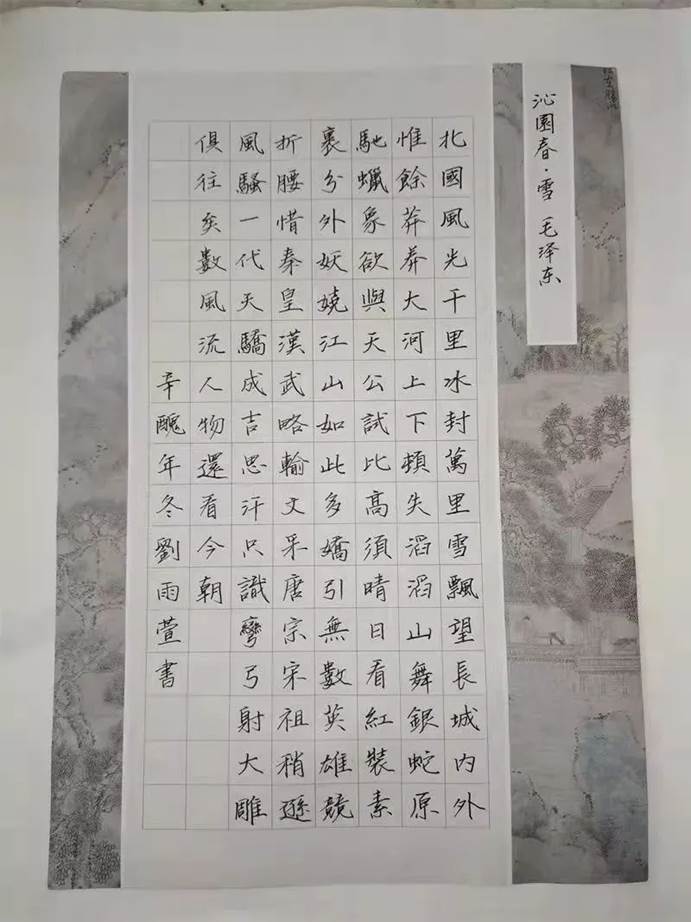 沁園春·雪 毛泽东
北國風光千里冰封萬里雪飄望長城內外
惟餘莽莽大河上下頓失滔滔山舞銀蛇原
馳蠟象欲與天公試比高須晴日看紅裝素
裹分外妖嬈江山如此多嬌引無數英雄競
折腰惜秦皇漢武略輸文采唐宗宋祖稍遜
風騷一代天驕成吉思汗只識彎弓射大雕
俱往矣數風流人物還看今朝
辛醜年冬劉雨萱書